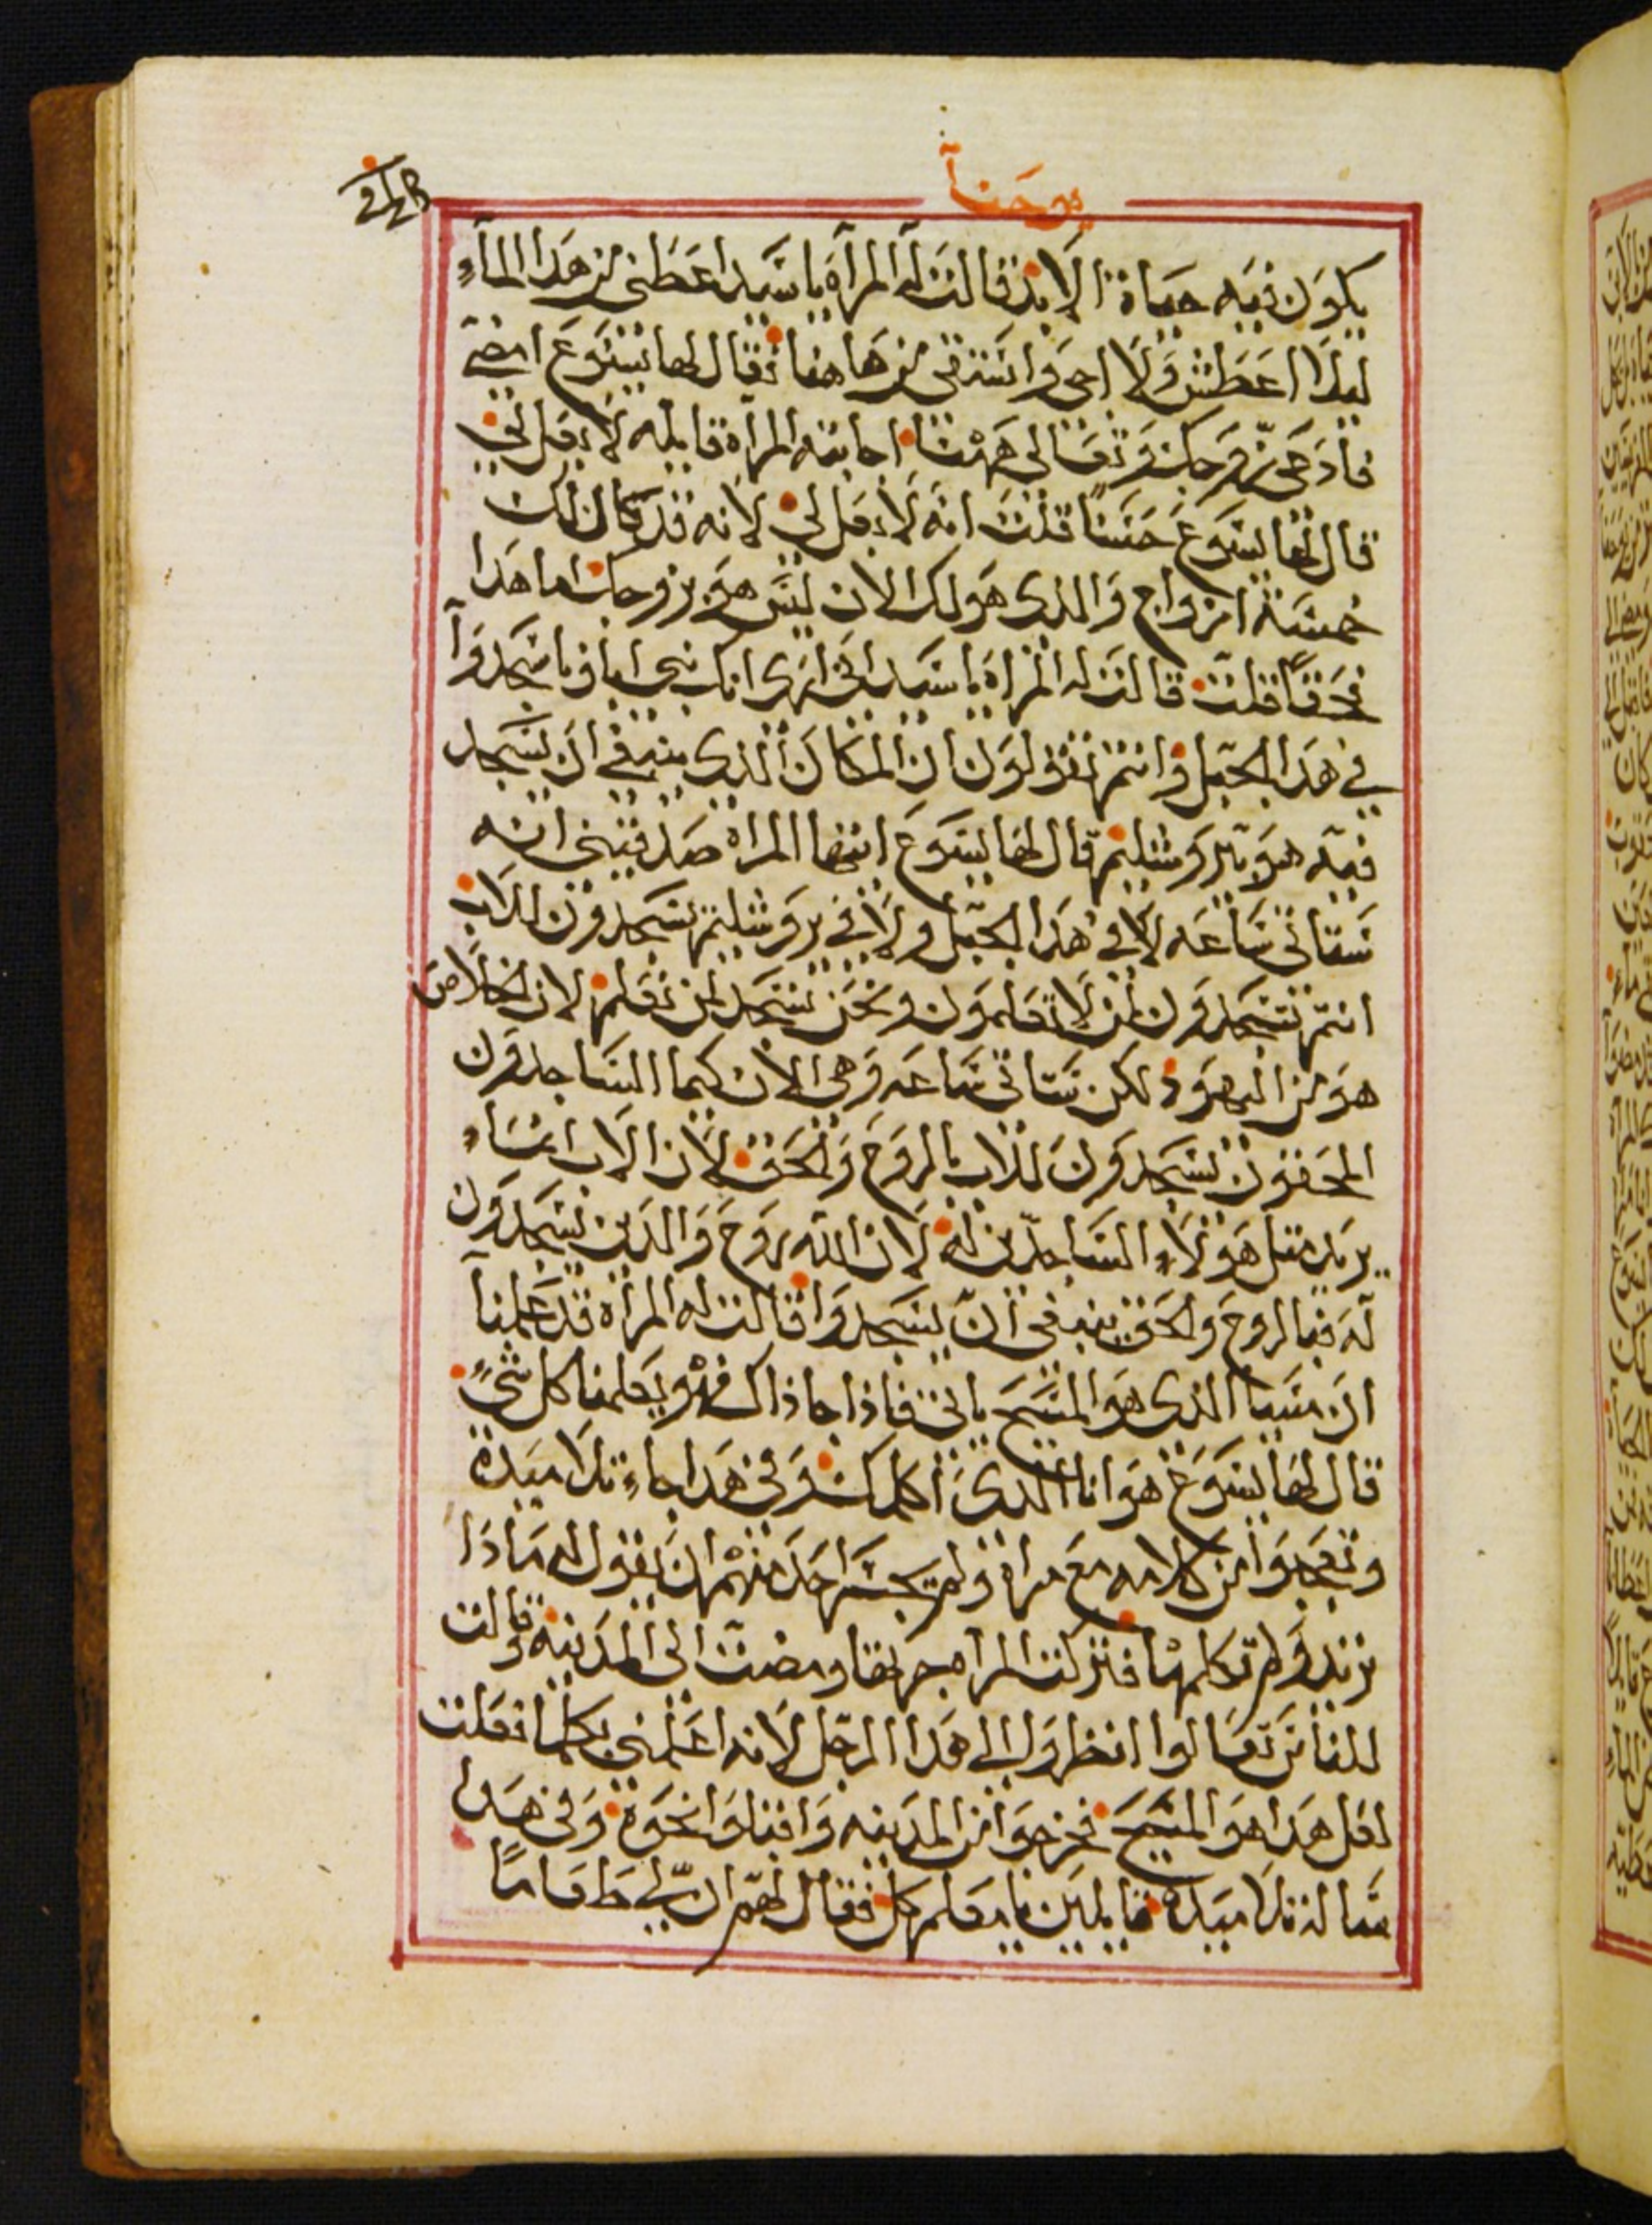 يوحنا
يكون فيه حياة الابد قالت له المراة يا سيد اعطني من هذا الماء
ليلا اعطش ولا اجي واستقي من هاهنا فقال لها يسوع امضي
فادعي زوجك وتعالي ههنا اجابته المراة قايله لا بعل لي
قال لها يسوع حسنا قلت انه لا بعل لي لانه قد كان لك
خمسة ازواج والذي هو لك الان ليس هو زوجك اما هذا
فحقا قلت قالت له المراة يا سيد اني ارى انك نبي اباونا سجدوا
في هذا الجبل وانتم تقولون ان المكان الذي ينبغي ان يسجد
فيه هو يروشليم قال لها يسوع ايتها المراة صدقيني انه
ستاتي ساعه لا في هذا الجبل ولا في يروشليم يسجدون للاب
انتم تسجدون لمن لا تعلمون ونحن نسجد لمن نعلم لان الخلاص
هو من اليهود لكن ستاتي ساعه وهي الان كيما الساجدون
المحقون يسجدون للاب بالروح والحق لان الاب انما
يريد مثل هولاء الساجدين له لان الله روح والذين يسجدون
له فبالروح والحق ينبغي ان يسجدوا قالت له المراة قد علمنا
ان مسيا الذي هو المسيح ياتي فاذا جا ذاك فهو يعلمنا كل شيء
قال لها يسوع هو انا الذي اكلمك وفي هذا جاء تلاميذه
وتعجبوا من كلامه مع مراة ولم يجسر احد منهم ان يقول له ماذا
تريد ولم تكلمها فتركت المراة جرتها ومضت الى المدينة وقالت
للناس تعالوا انظروا الى هذا الرجل لانه اعلمني بكلما فعلت
لعل هذا هو المسيح فخرجوا من المدينه واقبلوا نحوه وفي هذا
ساله تلاميذه قايلين يا معلم كل فقال لهم ان لي طعاما